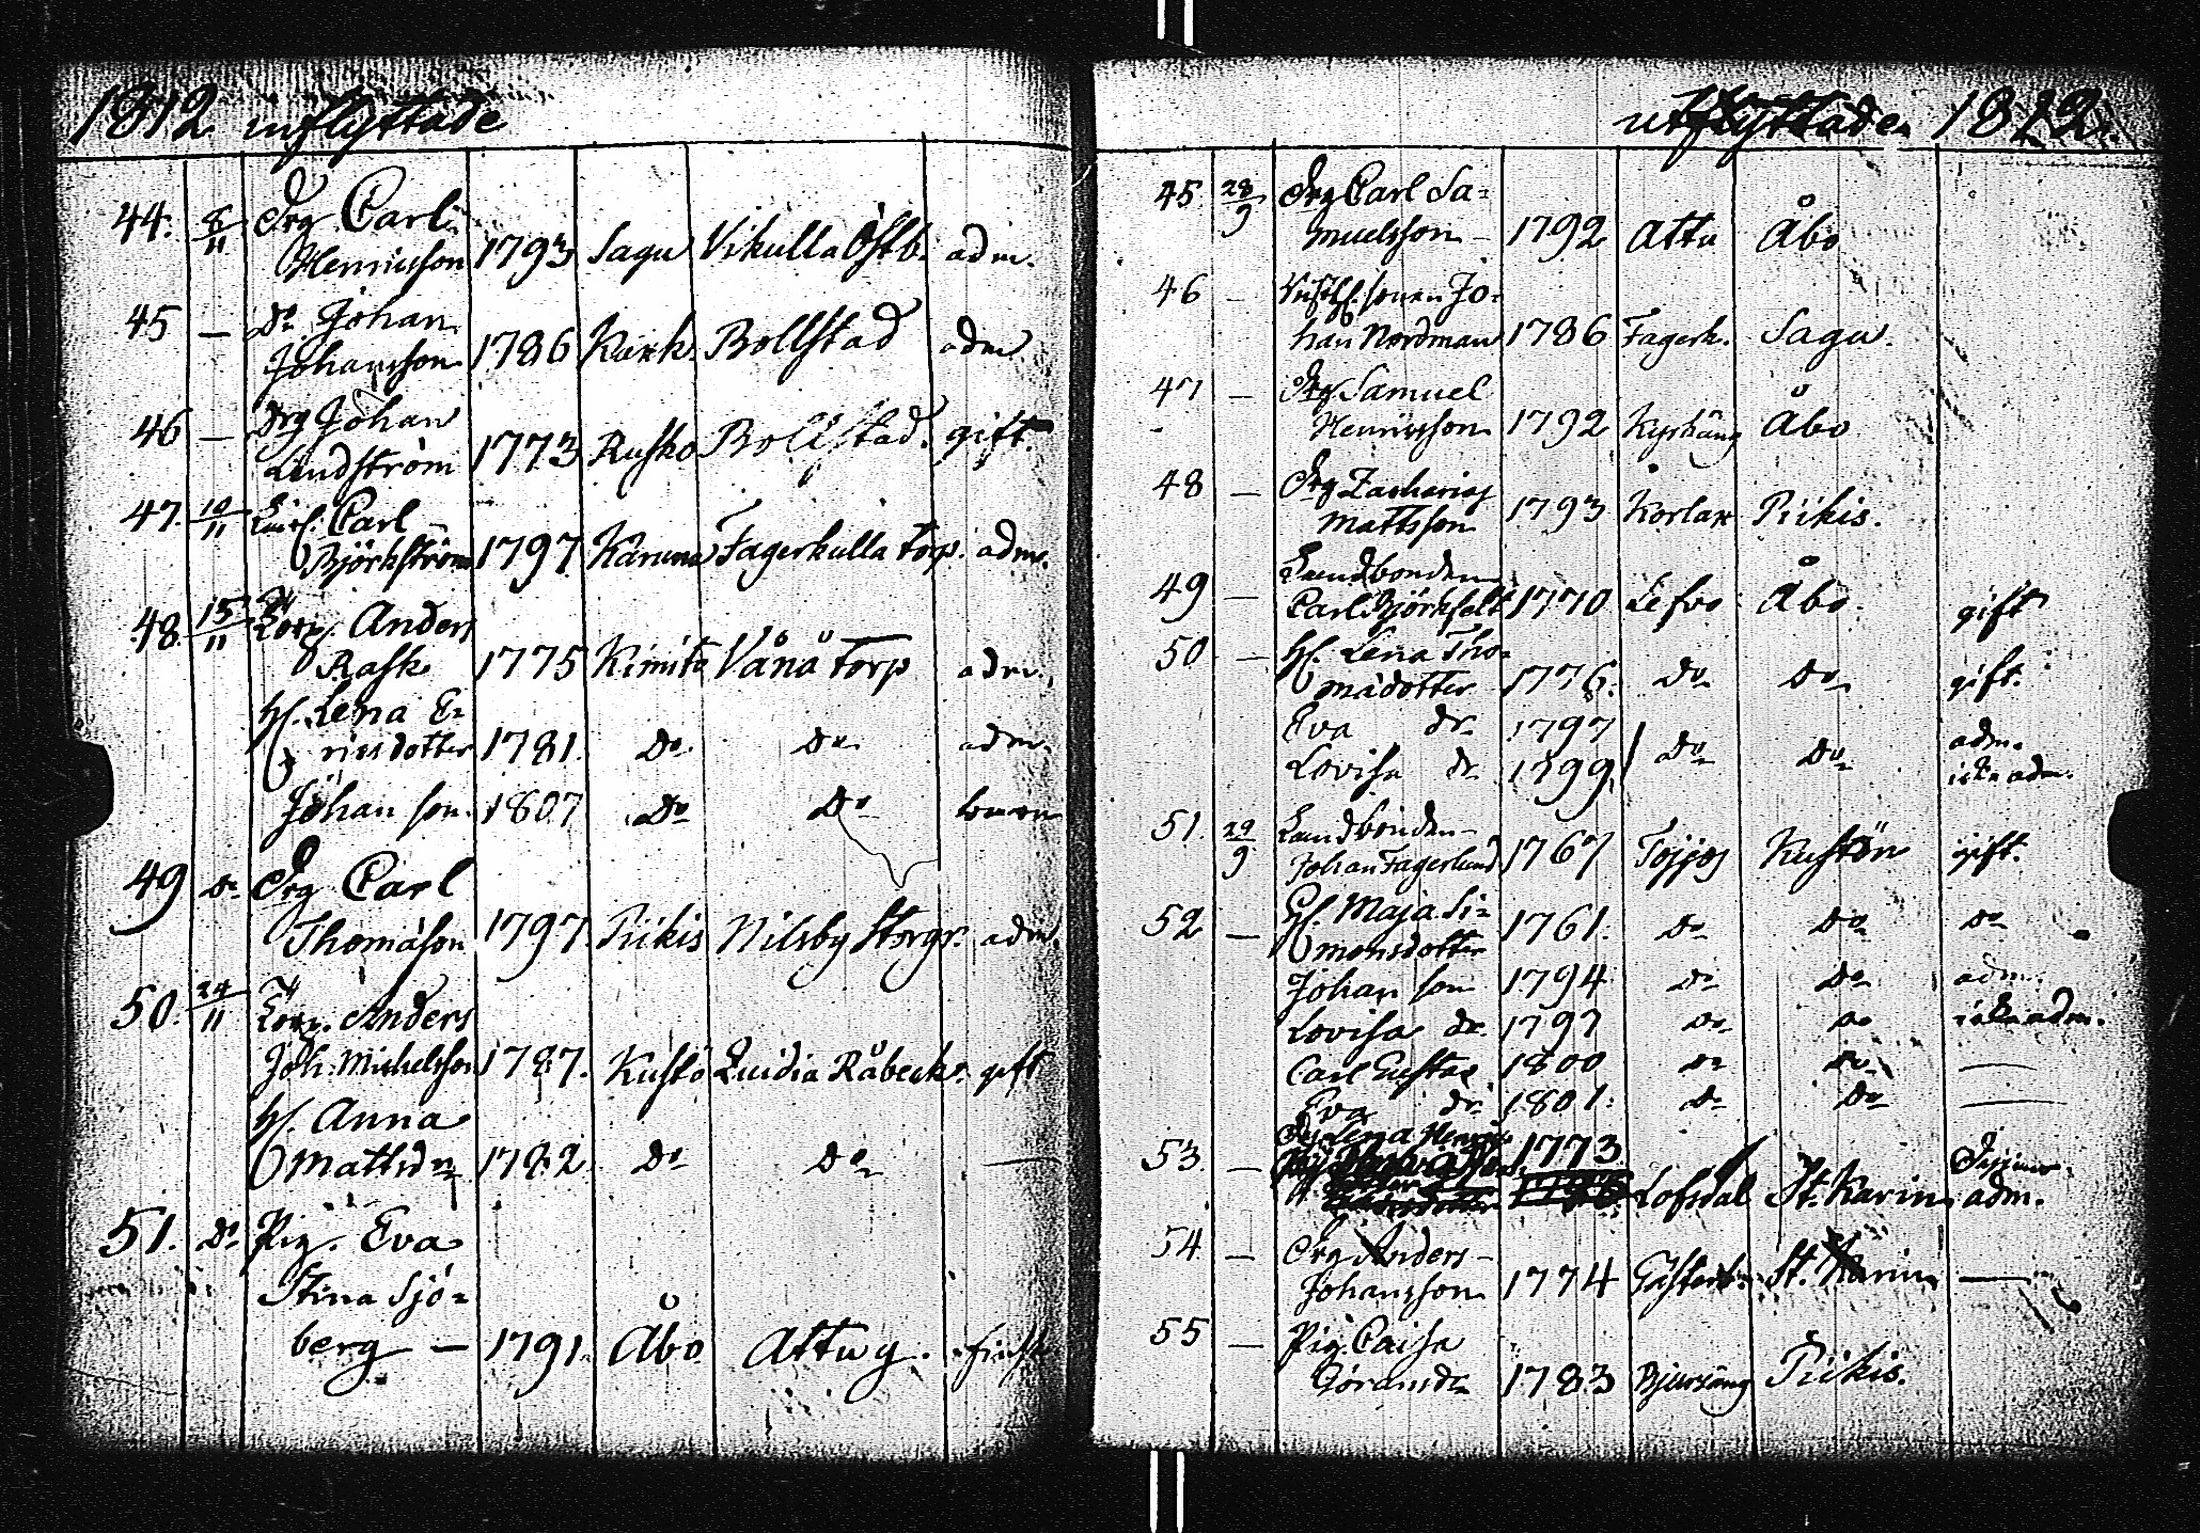 1812 inflyttade
44. 8/11 Drg Carl
Henricsson 1793 Sagu Vikulla Östb. adm.
45 — Do Johan
Johansson 1786 Kark. Bollstad adm
46 — Drg Johan
Lindström 1773 Rusko Bollstad. gift.
47. 10/11 Carl
Björkström 1797 Karuna Fagerkulla torp. adm.
48. 15/11 Torp. Anders
Rask 1775 Kimito Vånå Torp adm.
H. Lena E=
ricsdotter 1781. Do Do adm.
Johan son. 1807 Do Do barn
49 Do Drg Carl
Thomasson 1797. Piikis Nilsby Storgr. adm.
50. 24/11 Torp. Anders
Joh: Michelsson 1787. Kustö Råbeck. gift
H. Anna
Mattsdr 1782. Do Do —
51. Do Pig. Eva
Stina Sjö=
berg — 1791. Åbo Attu g.
utflyttade 1812.
45 28/9 Drg Carl Sa=
muelsson — 1792 Attu Åbo
46 — sonen Jo=
han Nordman 1786 Fagerk. Sagu.
47 — Drg Samuel
Henricsson 1792 Kyrkäng Åbo
48 — Drg Zacharias
Mattsson 1793 Korlax Piikis.
49 — Landbonden
Carl Björkfelt 1770 Lefvo Åbo. gift
50 — H. Lena Tho=
madotter 1776. Do Do gift.
Eva dr. 1797 adm.
Lovisa dr 1799 Do Do icke adm.
51. 29/9 Landbonden—
Johan Fagerlund 1767 Tojjos Kustön gift.
52 — H. Maja Si=
monsdotter 1761. Do Do Do
Johan son 1794 Do Do adm.
Lovisa dr. 1797 Do Do icke adm.
Carl Gustav 1800 Do Do —
Eva dr. 1801. Do Do —
53 — Lena 1773
Lofsdal St. Karins adm.
54 — Drg Anders —
Johansson 1774 St. Karins —
55 — Pig. Caisa
Göransdr 1783 Bjursäng Piikis.